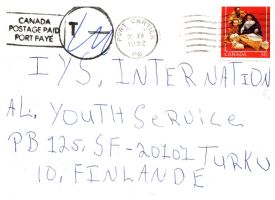 CANADA
POSTAGE PAID
PORT PAYÉ
T
PORT CARTIER
PQ
IYS, INTERNATION
AL. YOUTH SERVICE
PB 125, SF-20101 TURKU
10, FINLANDE